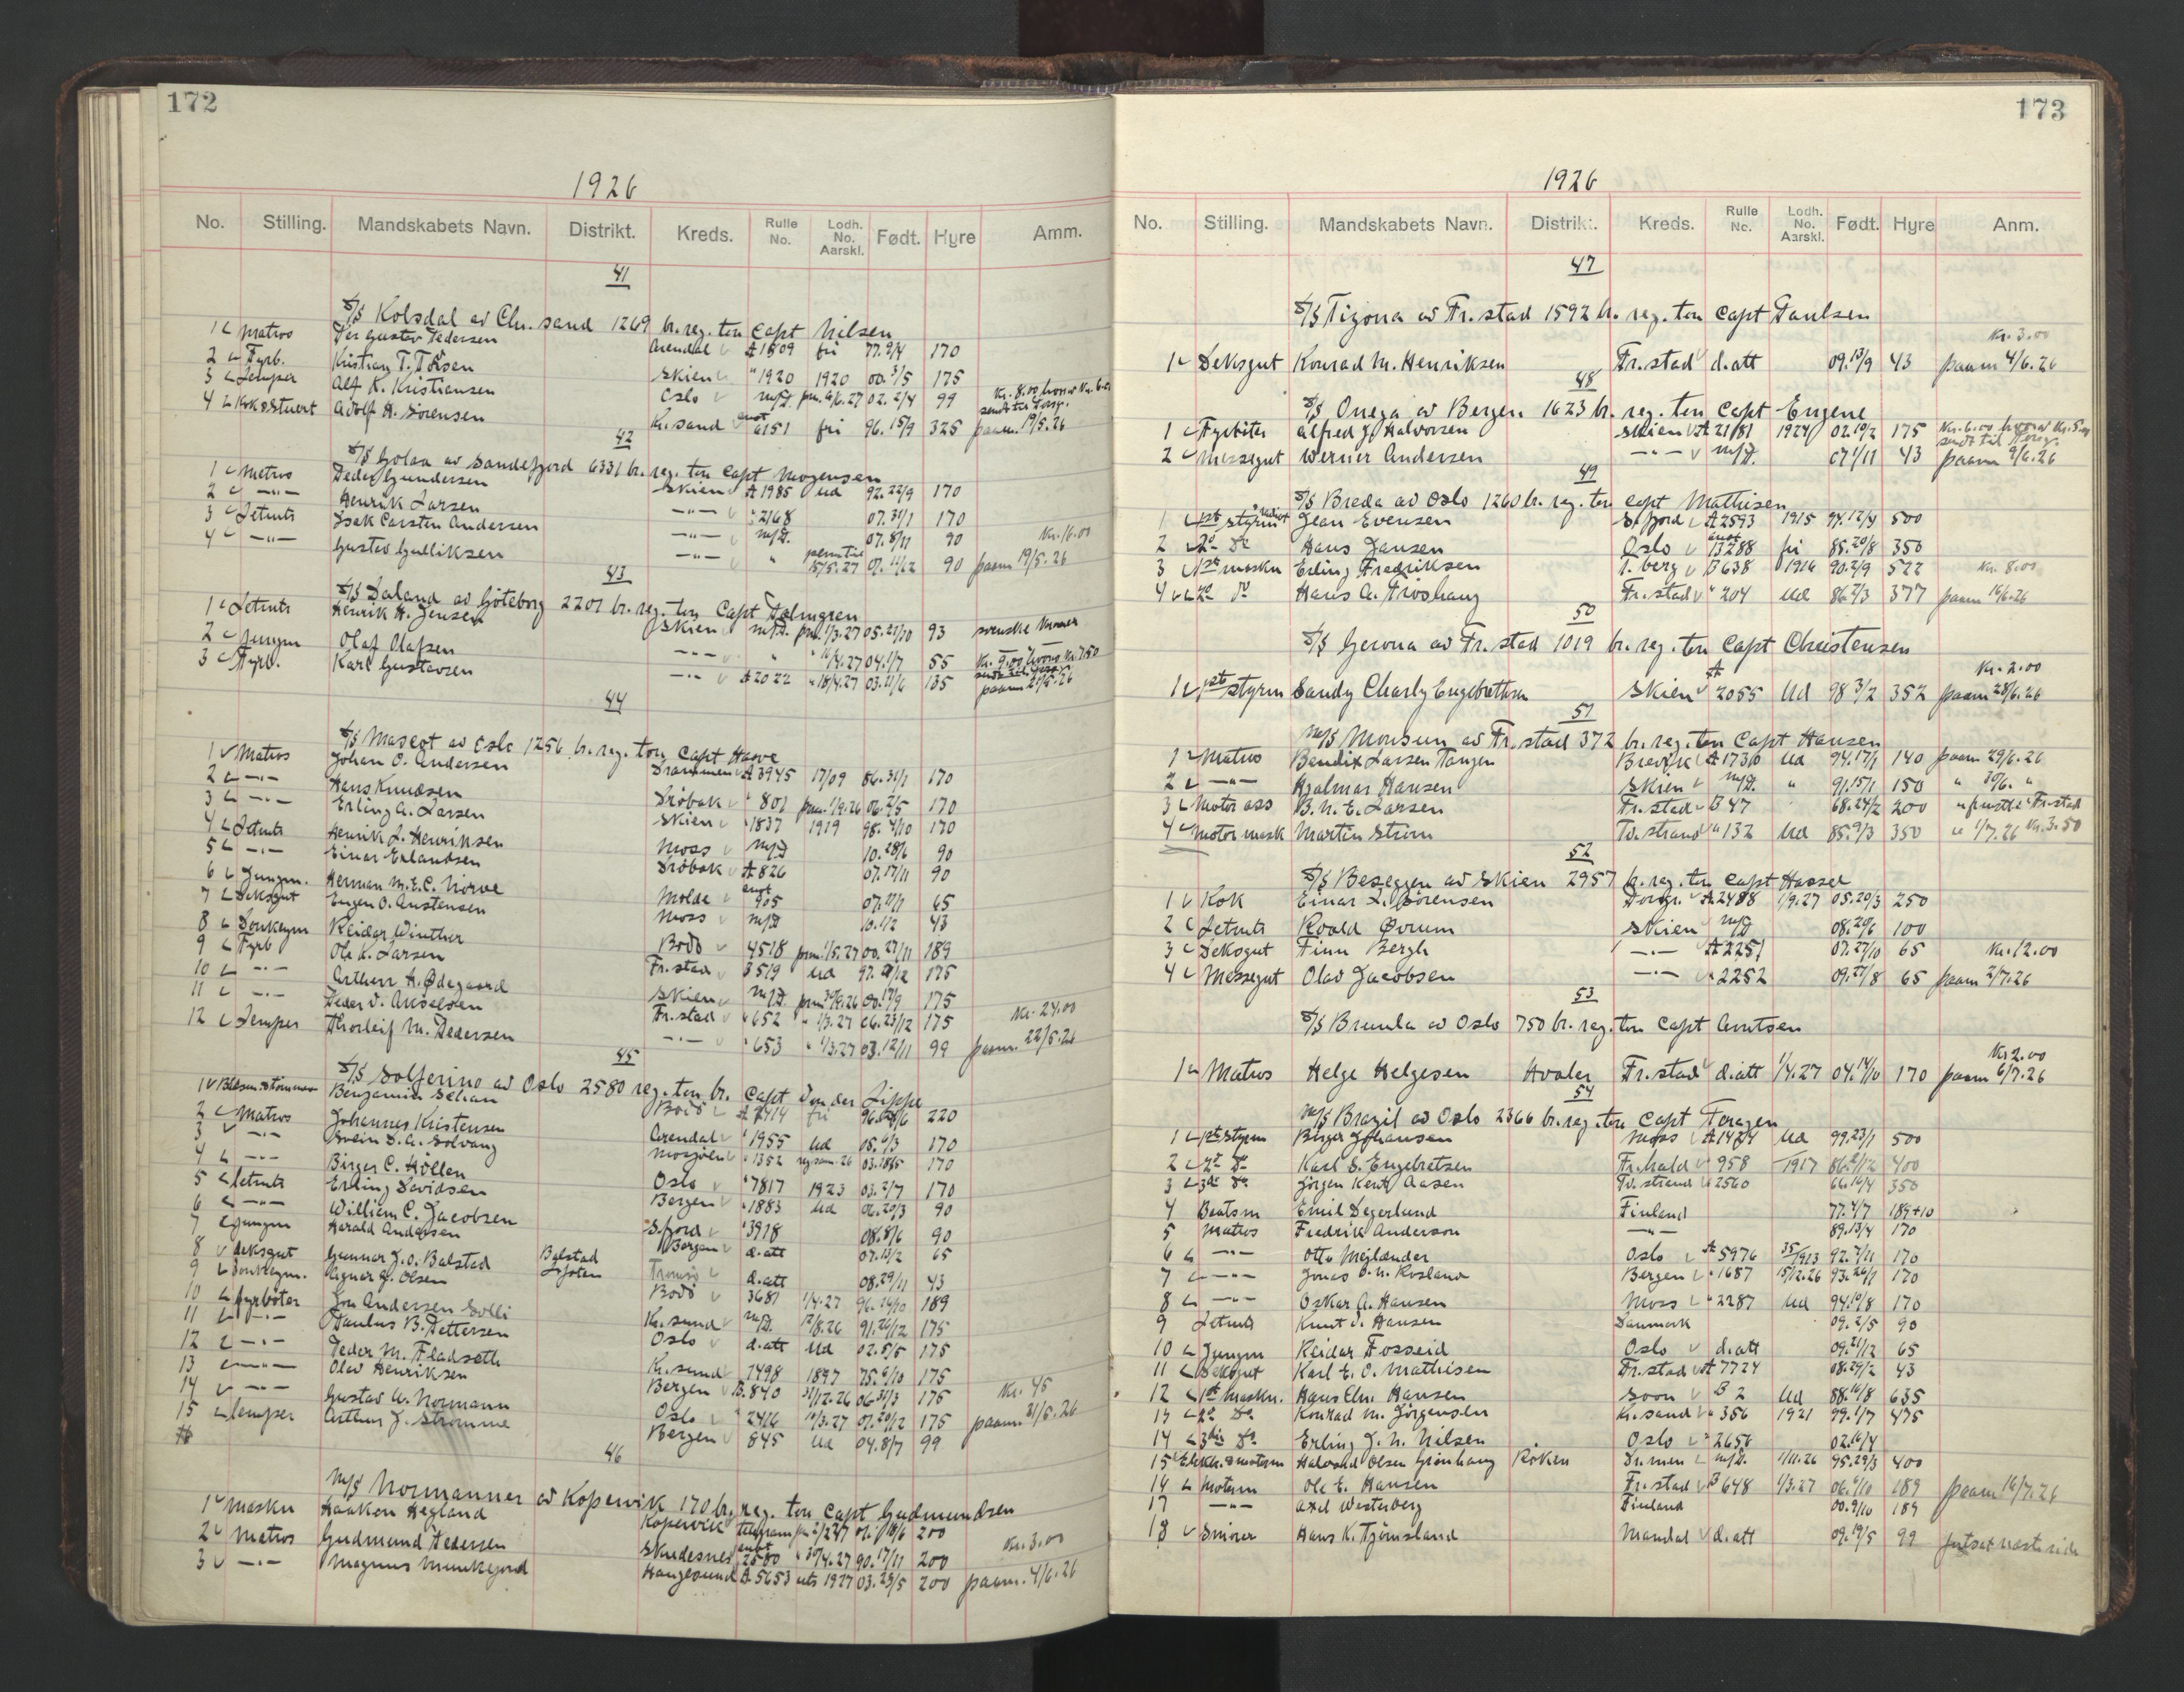 172
1926
No. Stilling. Mandskabets Navn. Distrikt. Kreds. Rulle No. Lodh. No. Aarskl. Født. Hyre Amm.
41
S/S Kolsdal av Chr.sand 1269 br. reg. ton Capt Nilsen
1 Matros Per Gustav Pedersen Arendal A 1509 fri 77. 9/4 170
2 Fyrb. Kristian T. Torsen Skien " 1920 1920 00. 3/5 175
3 Lemper Alf K. Kristiansen Oslo m/P. prm. 4/6.27 02. 2/4 99 Kr. 8.00 hvorav Kr. 6.00
4 Kok & Stuert Adolf A. Sörensen Kr.sand anot 6151 fri 96. 15/9 325 sendt til Porsgr. paam. 19/5.26
42
S/S Golaa av Sandefjord 6331 br. reg. ton Capt Mogensen
1 Matros Peder Gundersen Skien A 1985 Ud 92. 22/9 170
2 -"- Henrik Larsen -"- " 2168 07. 31/1 170
3 Letmts Isak Carsten Andersen -"- m/P. 07. 8/11 90 Kr. 16.00
4 -"- Gustav Gulliksen -"- " perm til 15/5.27 07. 11/12 90 paam 19/5.26
43
S/S Saland av Göteborg 2201 br. reg. ton Capt Holmgren
1 Letmts Henrik H. Jensen Skien m/P. prm. 1/3.27 05. 21/10 93 svenske kroner
2 Jungm Olaf Olafsen -"- " " 16/4.27 04. 1/7 55 Kr. 9.00 hvorav Kr. 7.50
3 Fyrb. Karl Gustavsen -"- A 2022 " 18/4.27 03. 21/6 135 sendt til Porsgr. paam 21/5.26
44
S/S Mascot av Oslo 1256 br. reg. ton Capt Harve
1 Matros Johan O. Andersen Drammen A 3945 17/09 86. 31/1 170
2 -"- Hans Knudsen Dröbak " 801 prm. 1/9.26 06. 2/5 170
3 -"- Erling A. Larsen Skien " 1837 1919 98. 4/10 170
4 Letmts Henrik L. Henriksen Moss m/P 10. 28/6 90
5 -"- Einar Erlandsen Dröbak A 826 07. 17/11 90
6 Jungm. Herman M. E. C. Norve Molde anot 905 07. 27/1 65
7 Deksgut Eugen O. Austensen Moss m/P 10. 1/2 43
8 Donkeym Reidar Winther Bodö 4518 prm. 1/5.27 00. 27/11 189
9 Fyrb Ole K. Larsen Fr.stad B 519 Ud 97. 21/12 175
10 -"- Arthur H. Ødegaard Skien m/P. prm 30/9.26 00. 17/9 175
11 -"- Peder V. Akselsen Fr.stad " 652 " 1/3.27 06. 23/12 175 Kr. 24.00
12 Lemper Thorleif M. Pedersen -"- " 653 " 1/3.27 03. 12/11 99 paam. 22/5.26
45
S/S Solferino av Oslo 2580 reg. ton br. Capt Von der Lippe
1 Benjamin Bodö A 2414 fri 220
2 Matros Johannes Kristensen Arendal " 1955 Ud 05. 6/3 170
3 -"- Svein D. A. Solvang Mosjöen " 1352 reg sam. 26 03. 18/5 170
4 -"- Birger C. Höllen Oslo " 7817 1923 03. 2/7 170
5 Letmts Erling Davidsen Bergen " 1883 Ud 06. 20/3 90
6 -"- William C. Jacobsen S.fjord " 3918 08. 8/6 90
7 Jungm Harald Andersen Bergen d.att 07. 13/2 65
8 Deksgut Gunnar J. O. Balstad Balstad Lofoten Tromsö d.att 08. 29/11 43
9 Donkeym. Agnar J. Olsen Bodö 3681 1/4.27 96. 14/10 189
10 Fyrböter Jon Andersen Solli Kr.sund m/P. 12/8.26 91. 26/12 175
11 -"- Paulus B. Pettersen Oslo d.att Ud 02. 5/5 175
12 -"- Peder M. Fladseth Kr.sund 1498 1897 75. 6/10 175
13 -"- Olav Henriksen Bergen B. 840 31/12.26 06. 31/3 175 Kr. 45
14 -"- Gustav A. Normann Oslo " 2416 10/3.27 07. 20/12 175 paam. 31/5.26
15 Lemper Arthur J. Strömme Bergen 845 Ud 04. 8/7 99
46
M/S Normanner av Kopervik 170 br. reg. ton Capt Gudmundsen
1 Maskn Haakon Hegland Kopervik telegram 200
2 Matros Gudmund Pedersen Skudesnes anot 2580 " 30/4.27 90. 17/11 200 Kr. 3.00
3 -"- Magnus Munkejord Haugesund A. 5653 uts 1927 03. 23/5 200 paam. 4/6.26
173
1926
No. Stilling. Mandskabets Navn. Distrikt. Kreds. Rulle No. Lodh. No. Aarskl. Født. Hyre Anm.
47
S/S Tizona av Fr.stad 1592 br. reg. ton Capt Paulsen
Kr. 3.00
1 Deksgut Konrad M. Henriksen Fr.stad d.att 09. 13/9 43 paam 4/6.26
48
S/S Onega av Bergen 1623 br. reg. ton Capt Eugene
1 Fyrböter Alfred J. Halvorsen Skien A 2181 1924 02. 19/2 175 Kr. 6.00 hvorav Kr. 5.00 sendt til Porsgr.
2 Messegut Werner Andersen -"- m/P. 07. 1/11 43 paam 9/6.26
49
S/S Breda av Oslo 1260 br. reg. ton Capt Mathisen
1 1st styrm & radiot Jean Evensen S.fjord A 2593 1915 94. 12/4 500
2 2d Do Hans Jansen Oslo anot 13288 fri 85. 20/8 350
3 1st maskn Erling Fredriksen T.berg B 638 1916 90. 2/9 522 Kr. 8.00
4 2d Do Hans A. Troshaug Fr.stad " 204 Ud 86. 2/3 377 paam 16/6.26
50
S/S Gerona av Fr.stad 1019 br. reg. ton Capt Christensen
Kr. 2.00
1 1st styrm Sandy Charly Engebrethsen Skien A 2055 Ud 98 3/2 352 paam 28/6.26
51
M/S Monsun av Fr.stad 372 br. reg. ton Capt Hansen
1 Matros Bendix Larsen Tangen Brevik A 1736 Ud 94. 17/1 140 paam 29/6.26
2 -"- Hjalmar Hansen Skien m/P. " 91. 15/1 150 " 30/6. "
3 Motor ass B. N. E. Larsen Fr.stad B 47 68. 24/2 200 Fr.stad
4 Motor mask Martin Ström Tv.strand " 132 Ud 85. 9/3 350 " 1/7.26 Kr. 3.50
52
S/S Beseggen av Skien 2957 br. reg. ton Capt Hassel
1 Kok Einar L. Sörensen Porsgr. A 2488 1/9.27 05. 20/3 250
2 Letmts Roald Øvrum Skien m/P 08. 20/6 100
3 Deksgut Finn Bergh -"- A 2251 07. 27/10 65 Kr. 12.00
4 Messegut Olav Jacobsen -"- " 2252 09. 27/8 65 paam 2/7.26
53
S/S Brumla av Oslo 750 br. reg. ton Capt Arntsen
Kr 2.00
1 Matros Helge Helgesen Hvaler Fr.stad d.att 1/4.27 04. 14/10 170 paam 6/7.26
54
M/S Brazil av Oslo 2366 br. reg. ton Capt Foragen
1 1st styrm Birger Johansen Moss A 1474 Ud 99. 23/1 500
2 2d Do Karl S. Engebretsen Fr.hald " 958 1917 86. 2/12 400
3 3die Do Jörgen Kent Aasen Tv.strand " 2560 66. 16/4 350
4 Baatsm Emil Degerlund Finland 77. 4/7 189+10
5 Matros Fredrik Anderson -"- 89. 13/4 170
6 -"- Otto Mejlander Oslo A 5976 35/1913 92. 7/11 170
7 -"- Jonas O. N. Rosland Bergen " 1687 15/12.26 93. 26/1 170
8 -"- Oskar A. Hansen Moss " 2287 Ud 94. 10/8 170
9 Letmts Knut V. Hansen Danmark 09. 2/5 90
10 Jungm Reidar Fosseid Oslo d.att 09. 21/12 65
11 Deksgut Karl E. O. Mathisen Fr.stad A 7724 08. 29/2 43
12 1st Maskn. Hans Chr. Hansen Soon B 2 Ud 88. 16/8 635
13 2d Do Konrad M. Jörgensen Kr.sand " 356 1921 99. 1/7 475
14 3die Do Erling J. N. Nilsen Oslo " 2656 02. 16/4
15 Elektr. & motorm Halvard Olsen Grönhaug Röken Dr.men m/P. 1/11.26 95. 29/3 400
16 Motorm Ole E. Hansen Fr.stad B 648 1/3.27 06. 6/10 189 paam 16/7.26
17 -"- Axel Westerberg Finland 00. 9/10 189
18 Smörer Hans K. Tjömsland Mandal d.att 09. 19/5 99 fortsat næste side